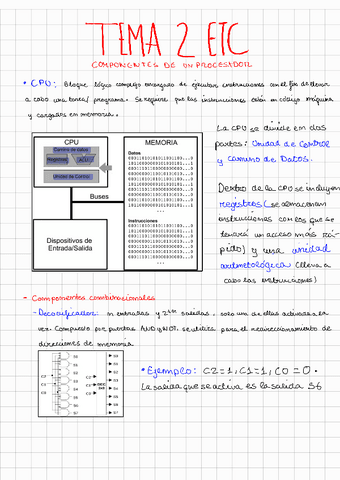 TEMA 2 ETC
COMPONENTES DE UN PROCESADOR
• CPU: Bloque lógico complejo encargado de ejecutar instrucciones con el fin de llevar
a cabo una tarea/programa. Se requiere que las instrucciones estén en código máquina
y cargadas en memoria.
CPU
Camino de datos
Registros
ALU
Unidad de Control
Buses
Dispositivos de
Entrada/Salida
MEMORIA
Datos
Instrucciones
...
La CPU se divide en dos
partes: Unidad de Control
y camino de Datos.
Dentro de la CPU se incluyen
registros (se almacenan
instrucciones con las que se
tendrá un acceso más rá-
pido) y una unidad
aritmetológica (lleva a
cabo las instrucciones)
- Componentes combinacionales
- Decodificador: n entradas y 2ⁿ salidas. Solo una de ellas activada a la
vez. Compuesto por puertas AND y NOT. Se utiliza para el redireccionamiento de
direcciones de memoria
C2
C1
C0
S0
S1
S2
S3
S4
S5
S6
S7
C2
C1
C0
DEC
3x8
S0
S1
S2
S3
S4
S5
S6
S7
• Ejemplo: C2=1, C1=1, C0=0.
La salida que se activa es la salida S6